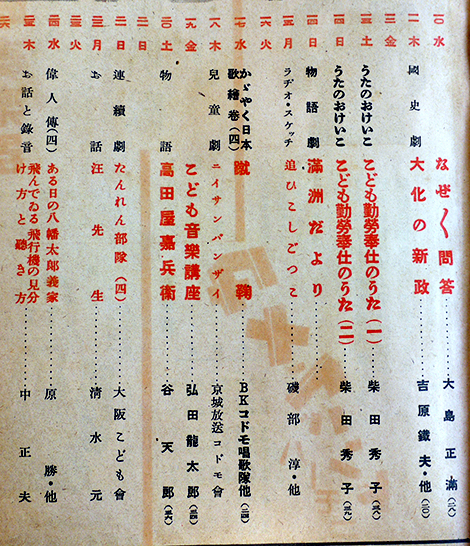 一〇 水 なぜ〱問答……大島正滿(三八)
一一 木 國史劇 大化の新政……吉原鐵夫・他(三〇)
一二 金
一三 土 うたのおけいこ こども勤勞奉仕のうた(一)……柴田秀子
一四 日 うたのおけいこ こども勤勞奉仕のうた(二)……柴田秀子
一四 日 物語劇 滿洲だより
一五 月 ラヂオ・スケッチ 追ひこしごつこ……磯部淳・他
一六 火
一七 水 かゞやく日本歌繪卷(四) 蹴鞠……BKコドモ唱歌隊他
一八 木 兒童劇 ニイサンバンザイ……京城放送コドモ會
一九 金 こども音樂講座……弘田龍太郎
二〇 土 物語 高田屋嘉兵衞……谷天郎
二一 日
二一 日 連續劇 たんれん部隊(四)……大阪こども會
二二 月 お話 汪先生……清水元
二三 火
二四 水 偉人傳(四) ある日の八幡太郎義家……原勝・他
二五 木 お話と錄音 飛んでゐる飛行機の見分け方と聽き方……中正夫